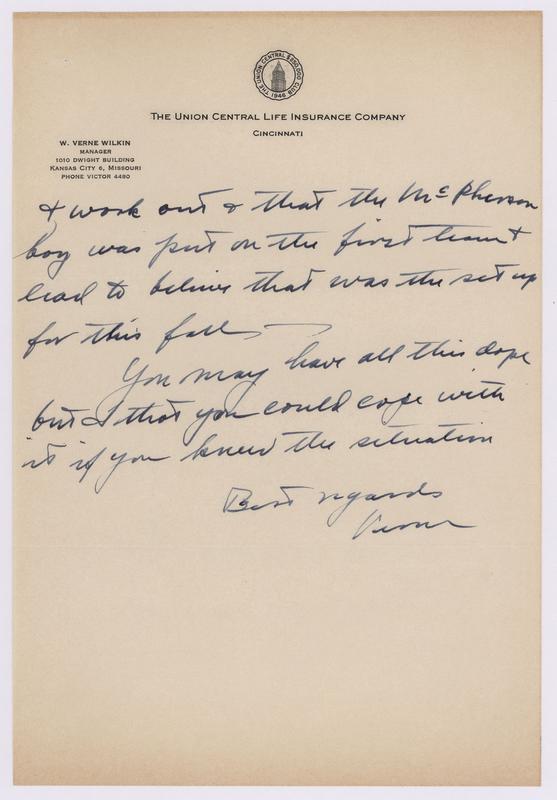 THE UNION CENTRAL $250,000 CLUB
1946
THE UNION CENTRAL LIFE INSURANCE COMPANY
CINCINNATI
W. VERNE WILKIN
MANAGER
1010 DWIGHT BUILDING
KANSAS CITY 6, MISSOURI
PHONE VICTOR 4480
& work out & that the McPherson
boy was put on the first team &
lead to believe that was the set up
for this fall
You may have all this dope
but & that you could cope with
it if you knew the situation
Best regards
Verne